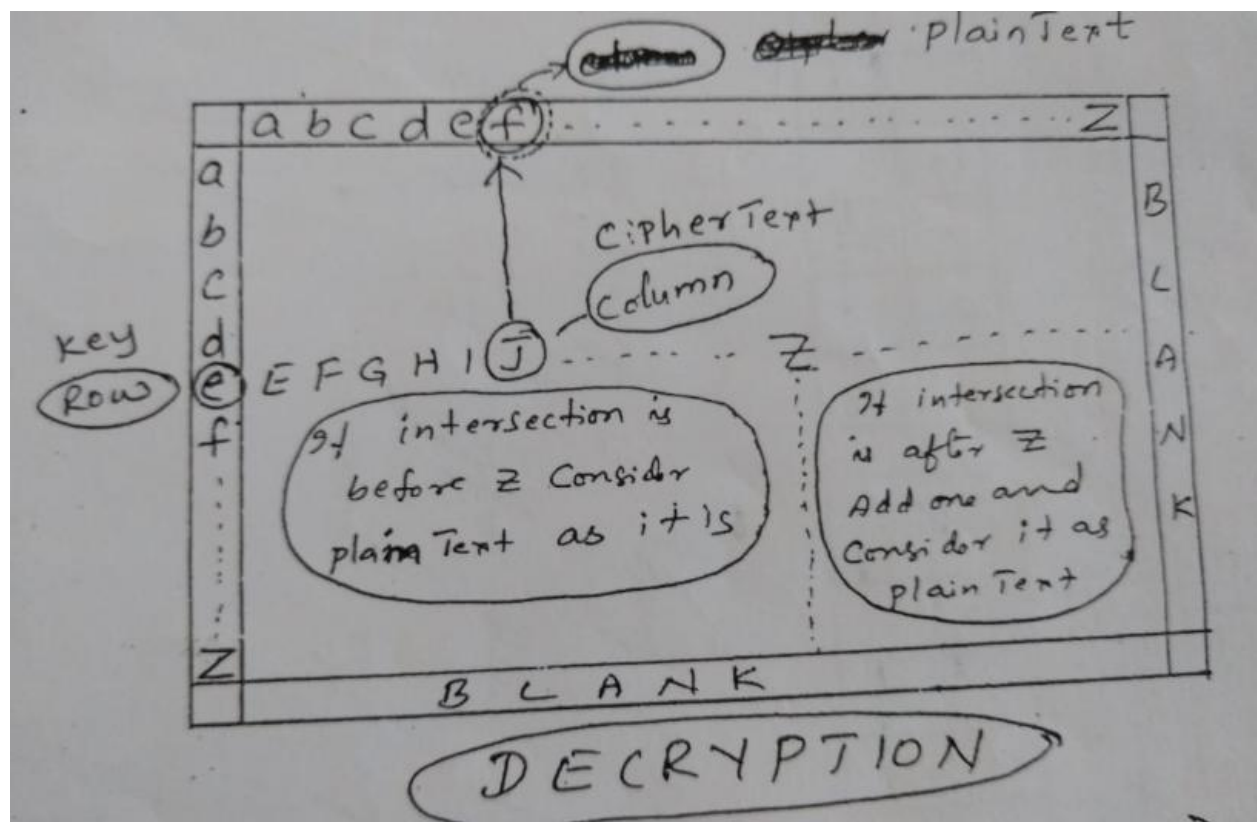 plainText
a b c d e f . . . . . . . . . . . . . . . . Z
a
b
c
d
e
f
Z
Key
Row
CipherText
Column
E F G H I J - - - - - - - Z - - - - - - - -
If intersection is
before Z Consider
plain Text as it is
If intersection
is after Z
Add one and
Consider it as
plain Text
B
L
A
N
K
B L A N K
DECRYPTION